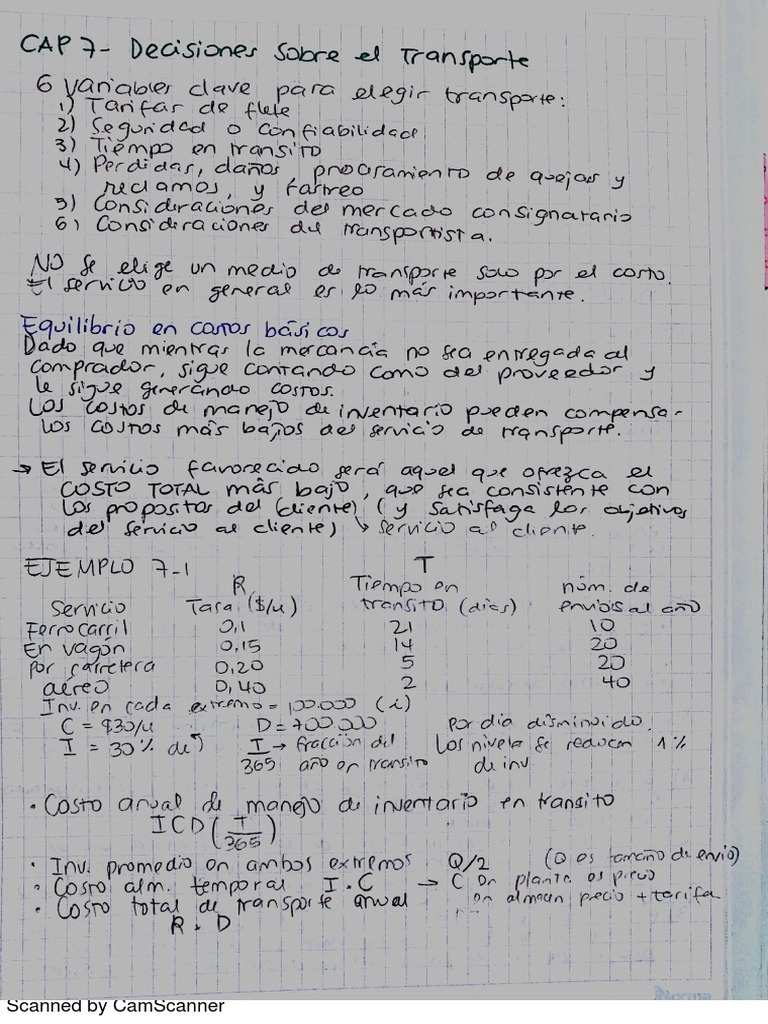 CAP 7- Decisiones sobre el Transporte
6 Variables clave para elegir transporte:
1) Tarifas de flete
2) Seguridad o confiabilidad
3) Tiempo en transito
4) Perdidas, daños, procesamiento de quejas y
reclamos, y rastreo
5) Consideraciones del mercado consignatario
6) Consideraciones del transportista.
NO se elige un medio de transporte solo por el costo.
El servicio en general es lo más importante.
Equilibrio en costos básicos
Dado que mientras la mercancia no sea entregada al
comprador, sigue contando como del proveedor y
le sigue generando costos.
Los costos de manejo de inventario pueden compensar
los costos más bajos del servicio de transporte.
→ El servicio favorecido será aquel que ofrezca el
COSTO TOTAL más bajo, que sea consistente con
los propositos del (cliente) (y satisfaga los objetivos
del servicio al cliente) ↳ servicio al cliente.
EJEMPLO 7-1
R T
Servicio Tasa ($/u) Tiempo en transito (días) núm. de envios al año
Ferrocarril 0,1 21 10
En vagón 0,15 14 20
Por carretera 0,20 5 20
aéreo 0,40 2 40
Inv. en cada extremo = 100.000 (i)
C = $30/u D = 700.000 Por dia disminuido
I = 30% de T/365 → fracción del año en transito Los niveles se reducen 1% de inv.
• Costo anual de manejo de inventario en transito
ICD(T/365)
• Inv. promedio en ambos extremos Q/2 (Q es tamaño de envio)
• Costo alm. temporal I.C → C en planta es precio
en almacen precio + tarifa
• Costo total de transporte anual
R . D
Norma
Scanned by CamScanner